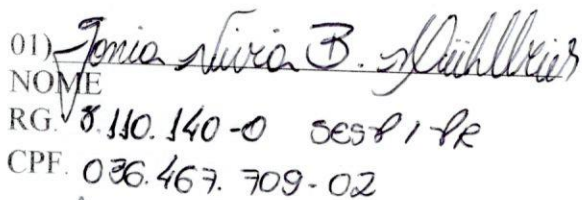 01) Tonia Nivia B. Mühlbeier
NOME
RG. 8.110.140-0 SESP/PR
CPF. 036.467.709-02